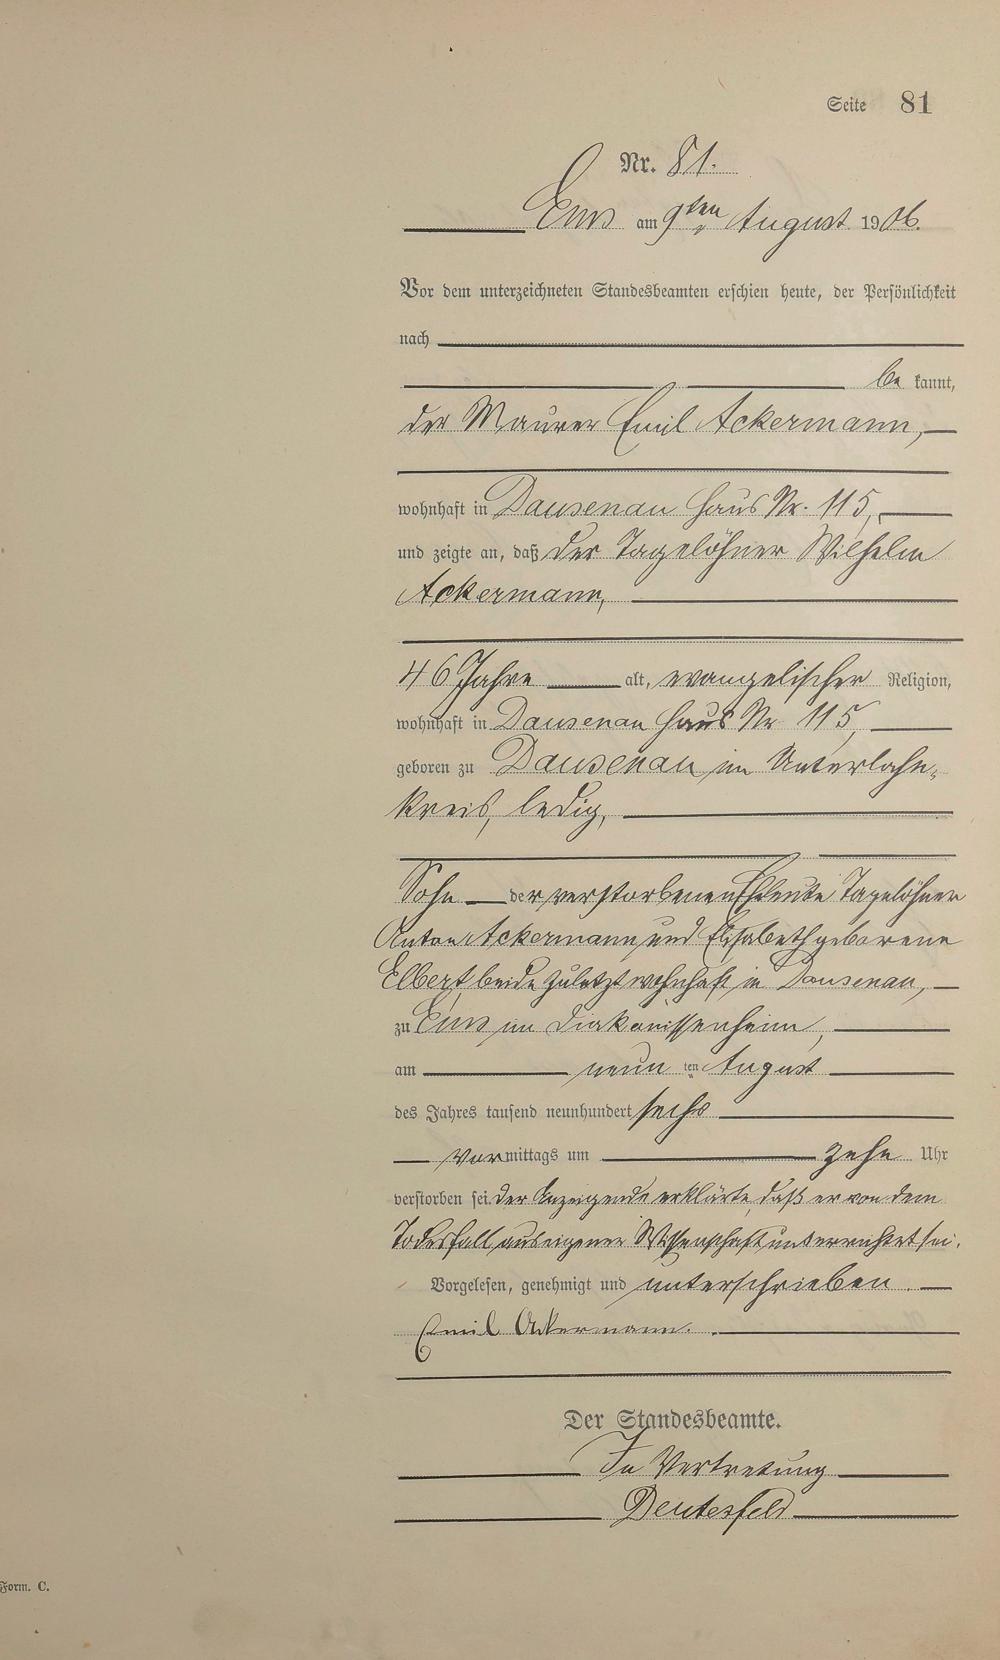 Seite 81
Nr. 81.
Ems am 9ten August 1906.
Vor dem unterzeichneten Standesbeamten erschien heute, der Persönlichkeit
nach
be kannt,
der Maurer Emil Ackermann,
wohnhaft in Dausenau Haus Nr. 115,
und zeigte an, daß der Tagelöhner Wilhelm
Ackermann,
46 Jahre alt, evangelischer Religion,
wohnhaft in Dausenau Haus Nr 115,
geboren zu Dausenau im Unterlahn-
kreis, ledig,
Sohn der verstorbenen Eheleute Tagelöhner
Anton Ackermann und Elisabeth geborene
Elbert, beide zuletzt wohnhaft in Dausenau,
zu Ems im Diakonissenheim,
am neun ten August
des Jahres tausend neunhundert sechs
Vormittags um zehn Uhr
verstorben sei. Der Anzeigende erklärte, daß er von dem
Todesfall aus eigener Wissenschaft unterrichtet sei.
Vorgelesen, genehmigt und unterschrieben.
Emil Ackermann.
Der Standesbeamte.
In Vertretung
Deutesfeld
Form. C.